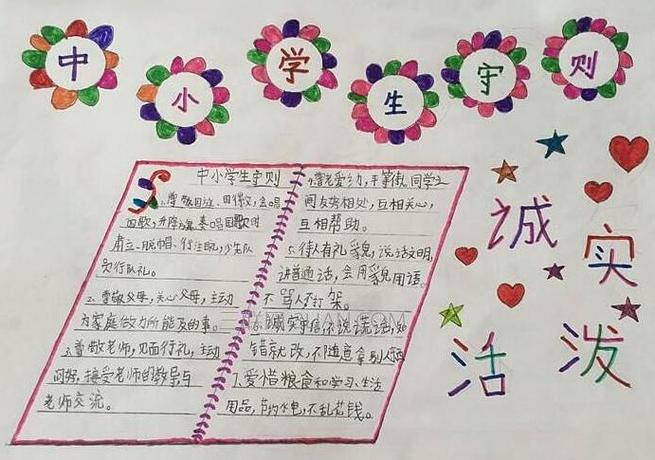 中小学生守则
中小学生守则
1.尊敬国旗、国徽，会唱
国歌，升降旗、奏唱国歌时
肃立、脱帽、行注目礼，少先队
员行队礼。
2.尊敬父母，关心父母，主动
为家庭做力所能及的事。
3.尊敬老师，见面行礼，主动
问好，接受老师的教导与
老师交流。
4.尊老爱幼，平等待同学之
间友好相处，互相关心，
互相帮助。
5.待人有礼貌，说话文明，
讲普通话，会用貌用语。
不骂人不打架。
6.诚实守信不说谎话，知
错就改，不随意拿别人
7.爱惜粮食和学习、生活
用品，节约水电，不乱花钱。
诚
实
活
泼